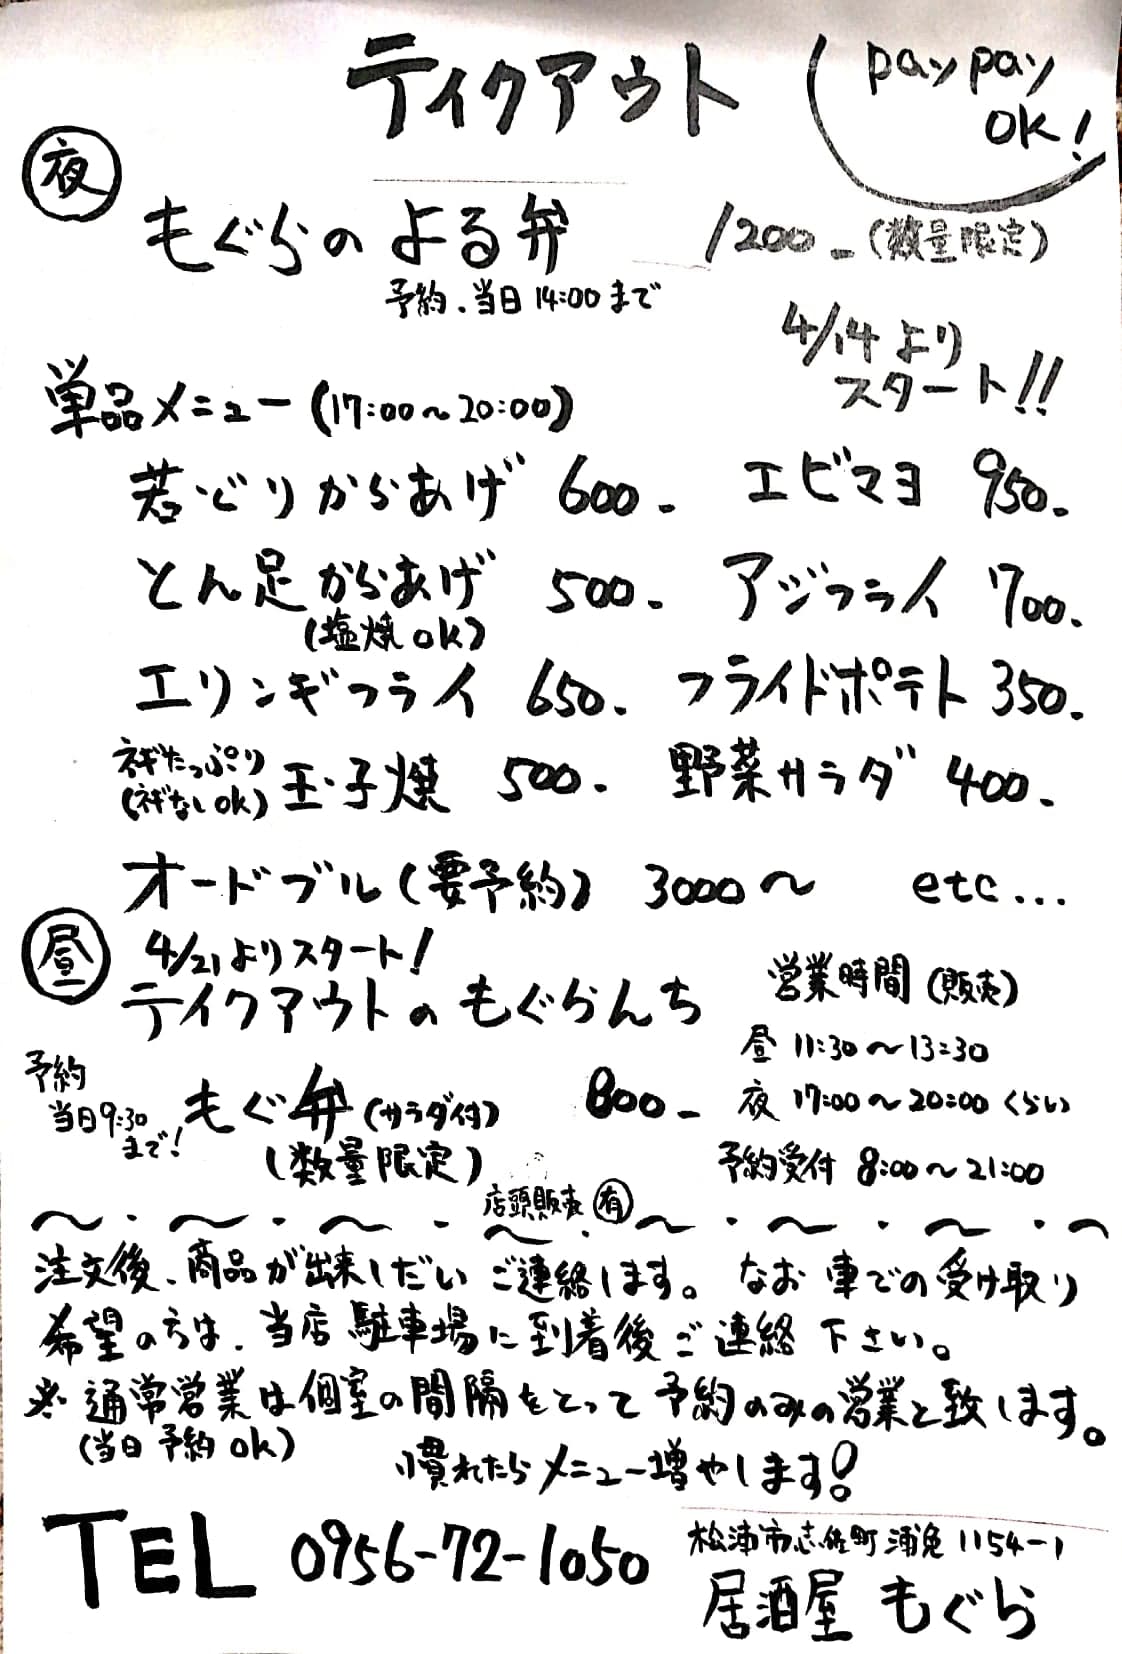 テイクアウト
paypay
OK!
夜
もぐらのよる弁 1200-(数量限定)
予約.当日14:00まで
4/14より
スタート!!
単品メニュー(17:00~20:00)
若どりからあげ 600. エビマヨ 950.
とん足からあげ 500. アジフライ 700.
(塩焼OK)
エリンギフライ 650. フライドポテト 350.
ネギたっぷり
(ネギなしOK) 玉子焼 500. 野菜サラダ 400.
オードブル(要予約) 3000~ etc...
昼
4/21よりスタート!
テイクアウトのもぐらんち
営業時間(販売)
昼 11:30~13:30
夜 17:00~20:00くらい
予約受付 8:00~21:00
予約
当日9:30
まで!
もぐ弁(サラダ付) 800-
(数量限定)
店頭販売 有
注文後、商品が出来しだいご連絡します。なお車での受け取り
希望の方は、当店駐車場に到着後ご連絡下さい。
※通常営業は個室の間隔をとって予約のみの営業と致します。
(当日予約OK)
慣れたらメニュー増やします!
TEL 0956-72-1050
松浦市志佐町浦免1154-1
居酒屋 もぐら